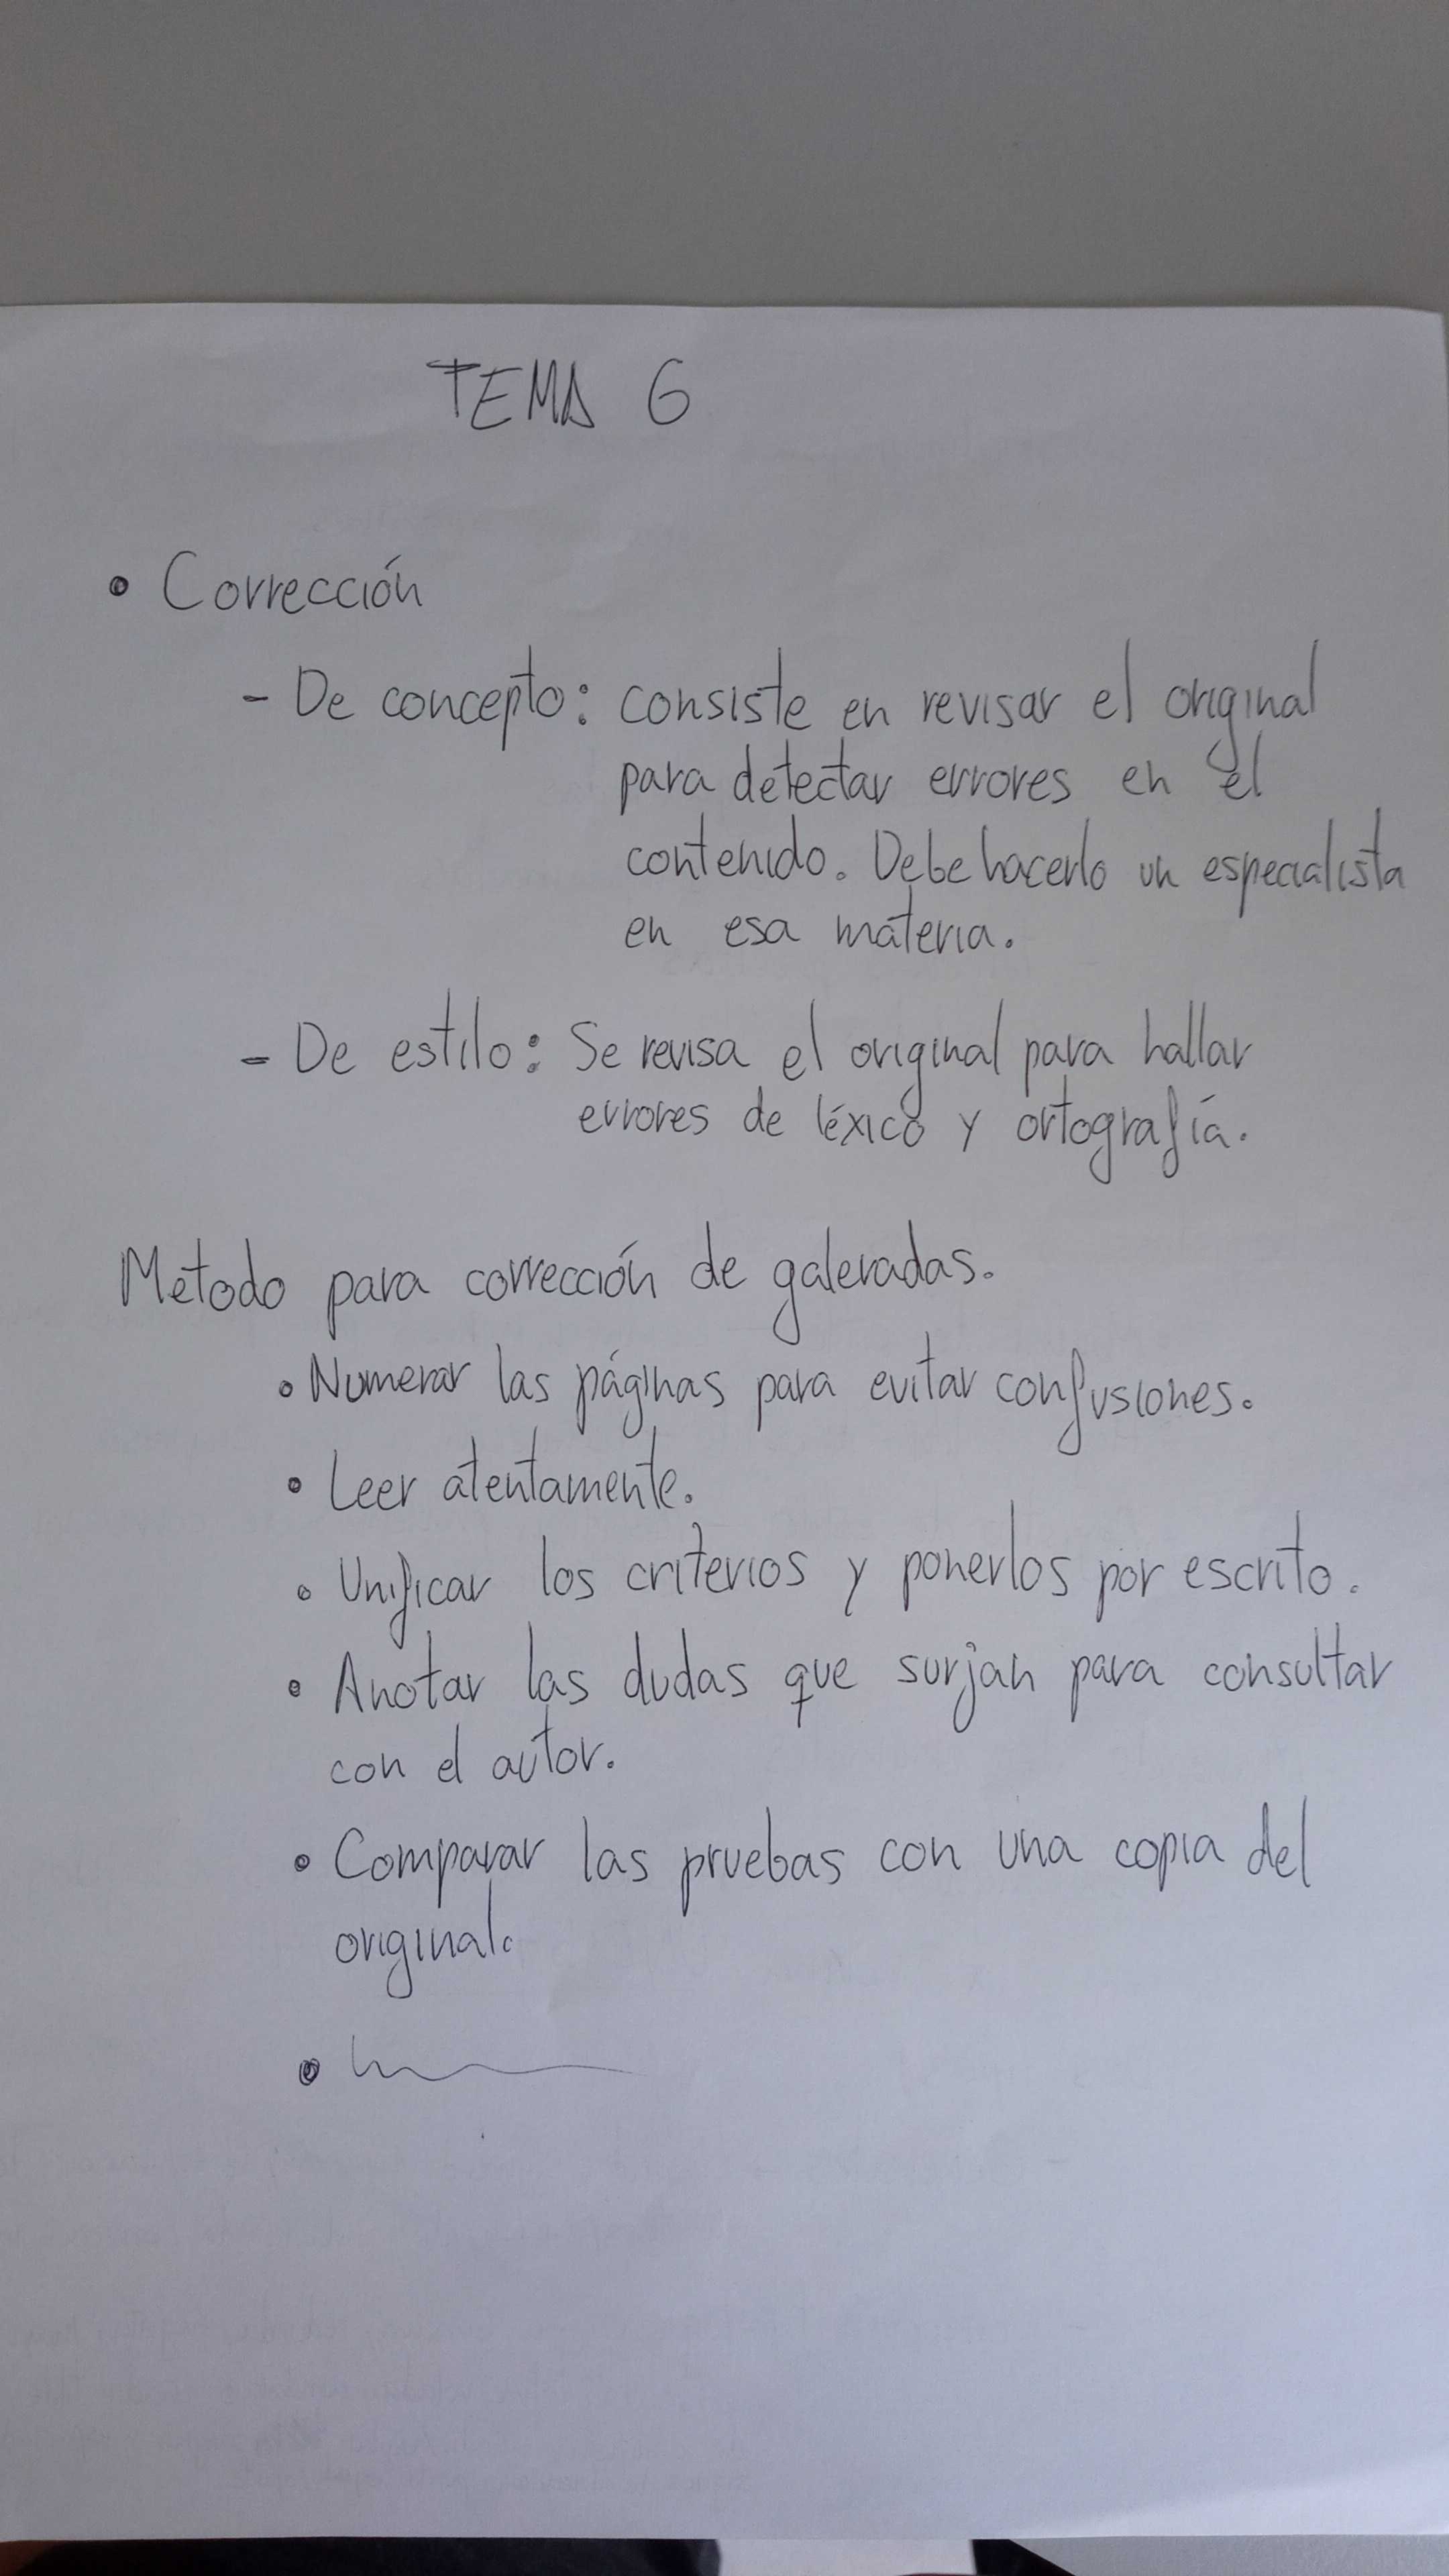 TEMA 6
• Corrección
- De concepto: consiste en revisar el original
para detectar errores en el
contenido. Debe hacerlo un especialista
en esa materia.
- De estilo: Se revisa el original para hallar
errores de léxico y ortografía.
Método para corrección de galeradas.
• Numerar las páginas para evitar confusiones.
• Leer atentamente.
• Unificar los criterios y ponerlos por escrito.
• Anotar las dudas que surjan para consultar
con el autor.
• Comparar las pruebas con una copia del
original.
•